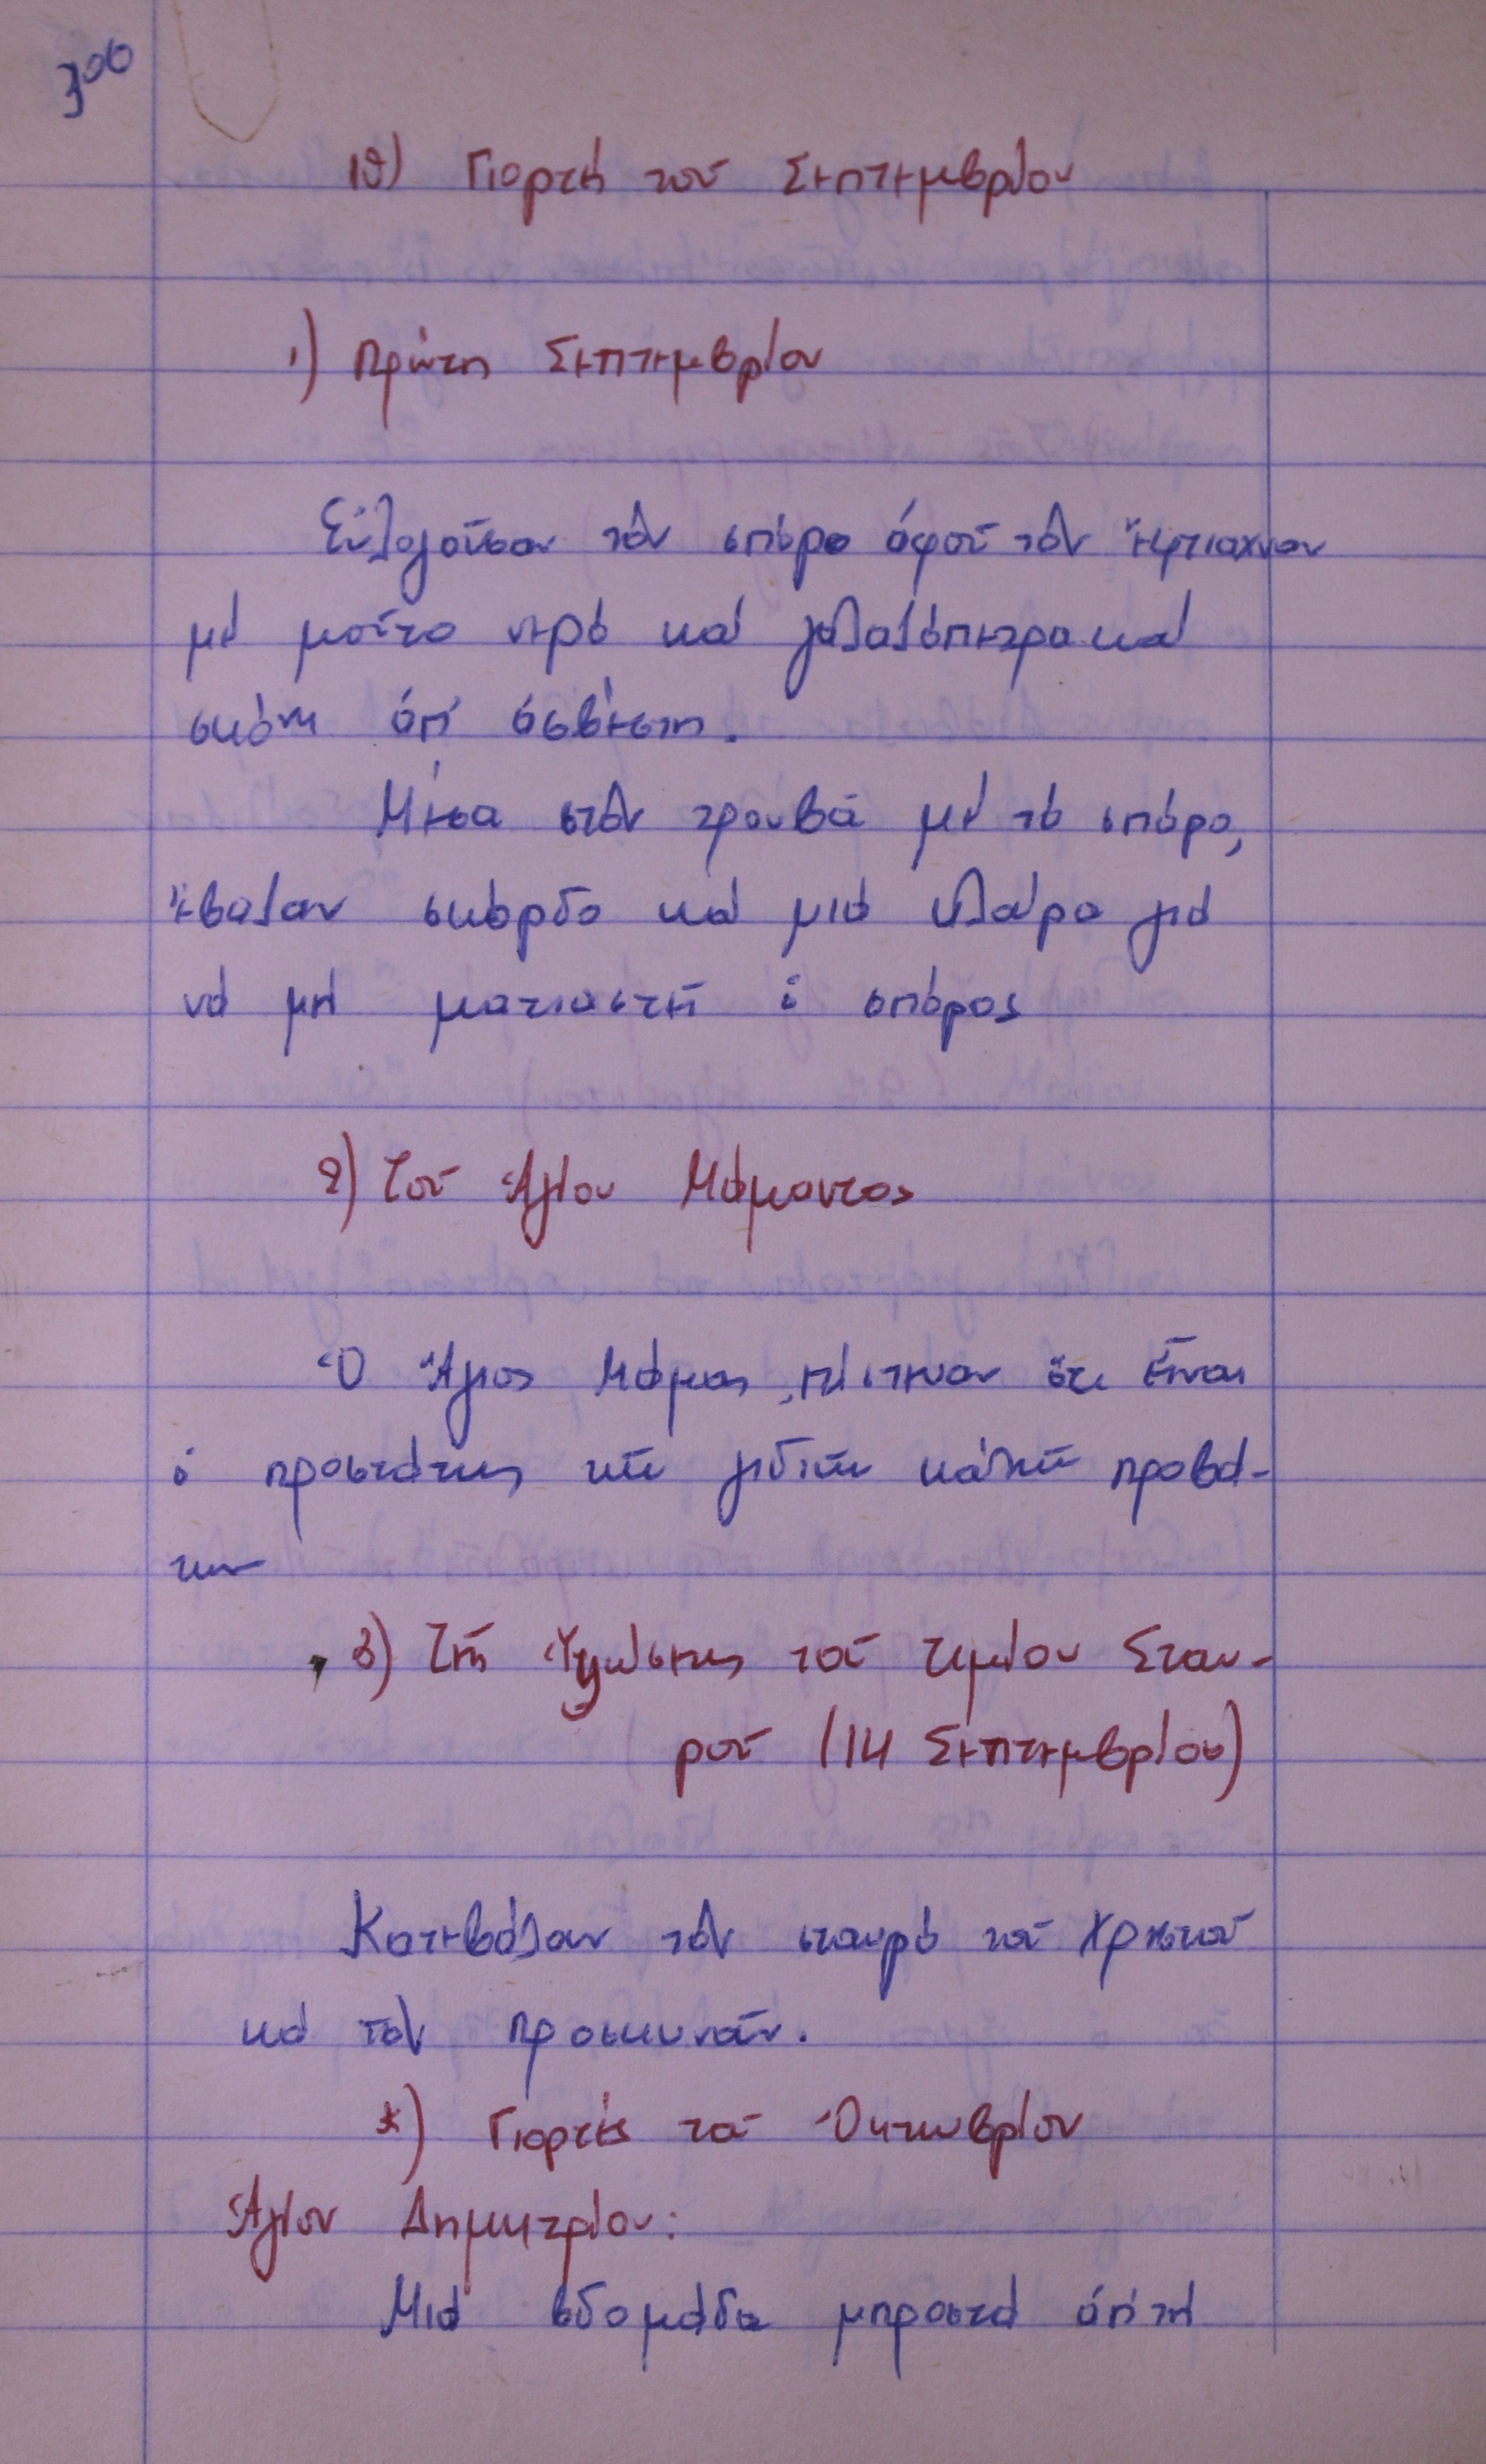 300
ιθ) Γιορτή τοῦ Σεπτεμβρίου
1) Πρώτη Σεπτεμβρίου
Εὐλογοῦσαν τόν σπόρο ἀφοῦ τόν ἔφτιαχναν
μέ μοῦτο νερό καί γαλαζόπετρα καί
σκόνη ἀπ' ἀσβέστη.
Μέσα στόν τρουβά μέ τό σπόρο,
ἔβαζαν σκόρδο καί μιά κλάρα γιά
νά μή ματιαστῆ ὁ σπόρος
2) Τοῦ Ἁγίου Μάμαντος
Ὁ Ἅγιος Μάμας, πίστευαν ὅτι εἶναι
ὁ προστάτης τῶν γιδιῶν κά τῶν προβά-
των
3) Τῆς Ὑψώσεως τοῦ Τιμίου Σταυ-
ροῦ (14 Σεπτεμβρίου)
Κατεβάζαν τόν σταυρό τοῦ Χριστοῦ
καί τόν προσκυνᾶν.
κ) Γιορτές τοῦ Ὀκτωβρίου
Ἁγίου Δημητρίου:
Μιά βδομάδα μπροστά ἀπ' τή